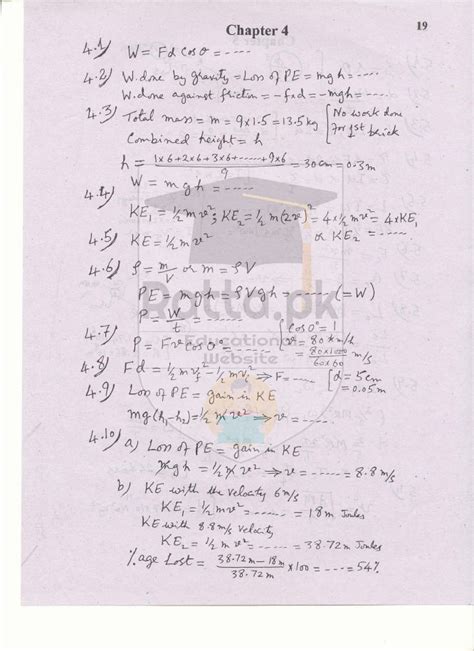 Chapter 4
19
4.1) W = Fd cosθ = -----
4.2) W. done by gravity = Loss of PE = mgh = -----
W. done against friction = -f×d = -mgh = -----
4.3) Total mass = m = 9×1.5 = 13.5 kg [No work done
For 1st brick
Combined height = h
h = (1×6+2×6+3×6+------+9×6)/9 = 30cm = 0.3m
W = mgh = -----
4.4) KE₁ = ½mv²; KE₂ = ½m(2v)² = 4×½mv² = 4×KE₁
or KE₂ = -----
4.5) KE = ½mv²
4.6) ρ = m/V or m = ρV
PE = mgh = ρVgh = ----- (=W)
P = W/t = -----
4.7) P = Fv cos0° = -----
[cos0° = 1
v = 80 km/h
= 80×1000/60×60 m/s
4.8) Fd = ½mvf² - ½mvi² ⇒ F = ----- [d = 5cm
= 0.05m
4.9) Loss of PE = gain in KE
mg(h₁-h₂) = ½mv² ⇒ v = -----
4.10) a) Loss of PE = gain in KE
mgh = ½mv² ⇒ v = ----- = 8.8 m/s
b) KE with the velocity 6 m/s
KE₁ = ½mv² = ----- = 18m Joules
KE with 8.8 m/s velocity
KE₂ = ½mv² = ----- = 38.72m Joules
%age Lost = (38.72m - 18m)/38.72m ×100 = ---- = 54%
Ratta.pk
Educational
Website